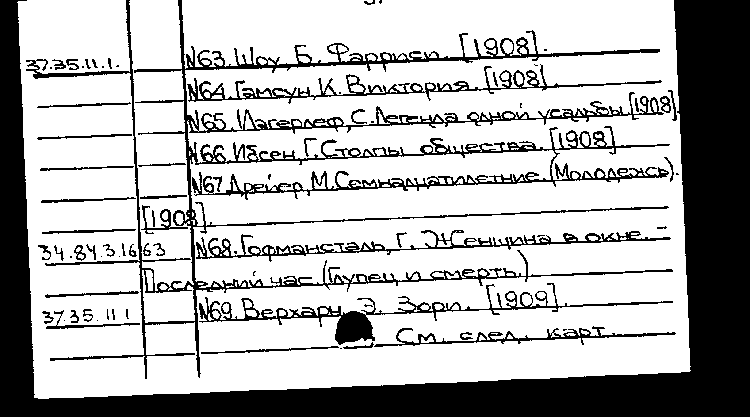 37.35.11.1. N63. Шоу, Б. Фаррисп. [1908].
N64. Гамсун, К. Виктория. [1908]
N65. Лагерлеф, С. Легенда одной усадьбы [1908].
N66. Ибсен, Г. Столпы общества. [1908]
N67. Дрейер, М. Семнадцатилетние. (Молодежь).
[1908].
34.84.3.16 63 N68. Гофмансталь, Г. Женщина в окне. -
Последний час. (Глупец и смерть.)
37.35.11.1 N69. Верхарн, Э. Зори. [1909].
См. след. карт.